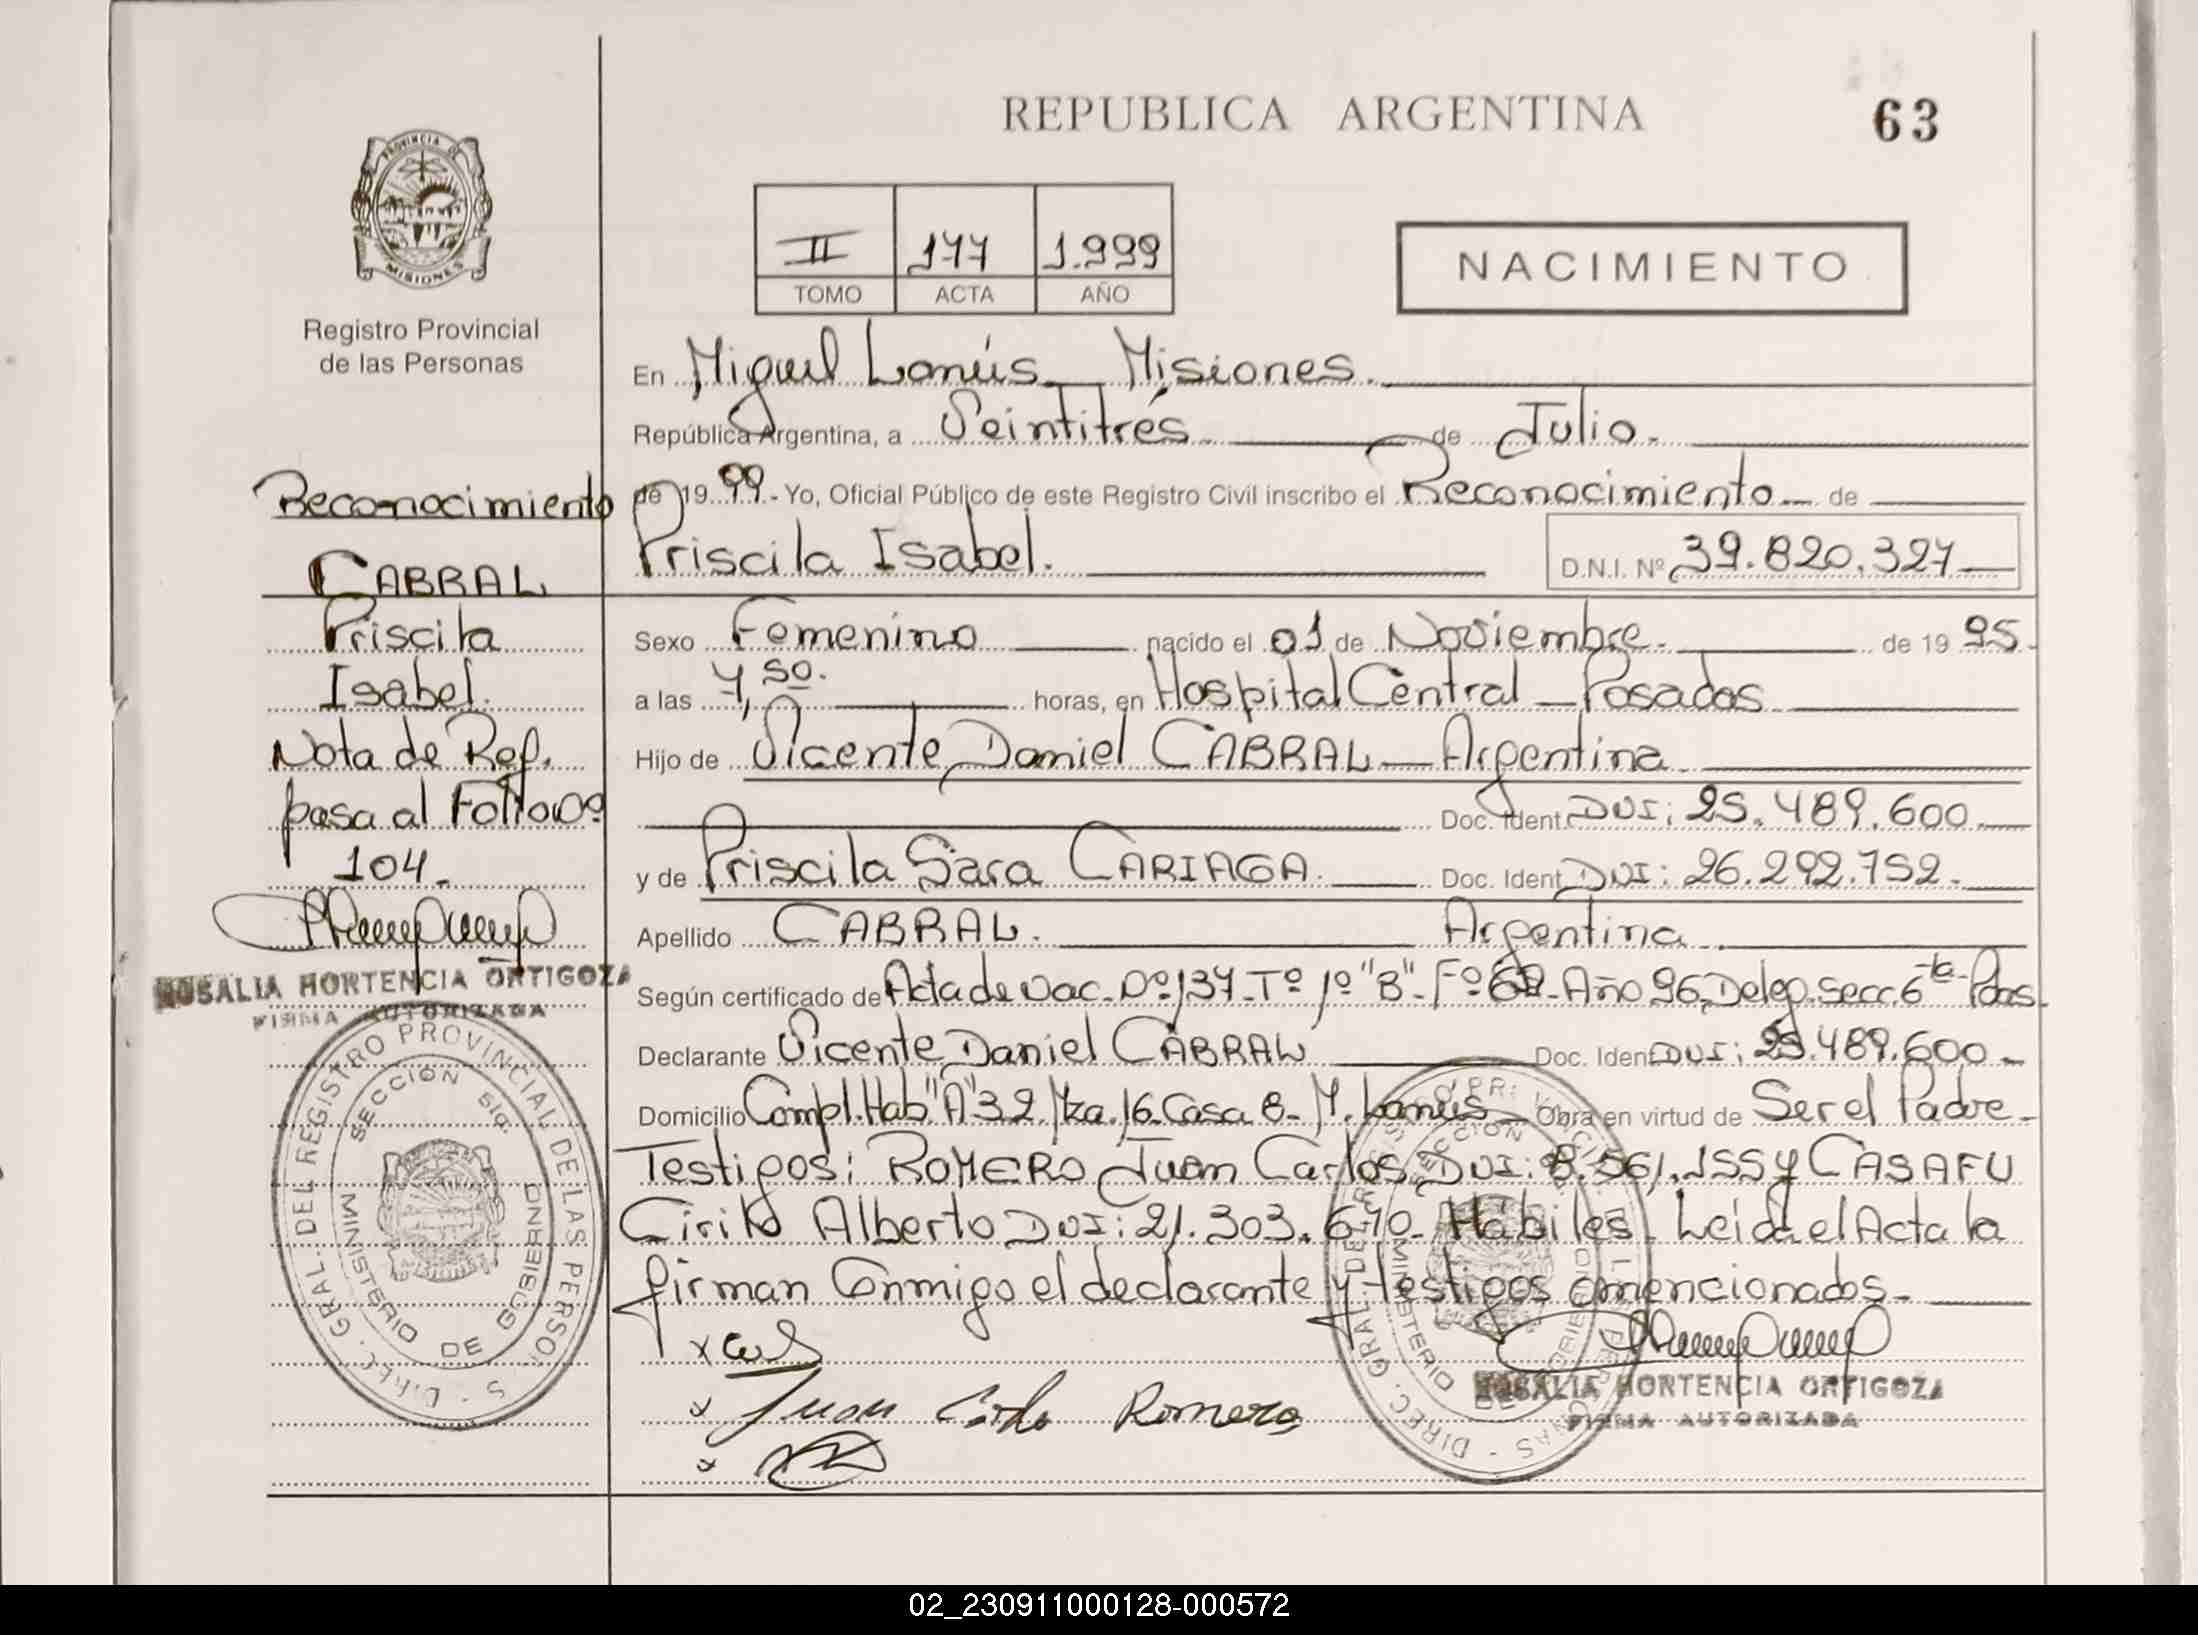 REPUBLICA ARGENTINA
63
PROVINCIA DE
MISIONES
Registro Provincial
de las Personas
II 177 1.999
TOMO ACTA AÑO
NACIMIENTO
En Miguel Lanús - Misiones.
República Argentina, a Veintitrés de Julio.
de 1999.- Yo, Oficial Público de este Registro Civil inscribo el Reconocimiento de
Priscila Isabel. D.N.I. Nº 39.820.327
Sexo Femenino nacido el 01 de Noviembre. de 1995.
a las 7,50. horas, en Hospital Central - Posadas
Hijo de Vicente Daniel CABRAL - Argentina
Doc. Ident. DNI: 25.489.600
y de Priscila Sara CARIAGA. Doc. Ident. DNI: 26.292.752.
Apellido CABRAL. Argentina
Según certificado de Acta de Nac. Nº 137 - Tº 1º "B" - Fº Año 96 Deleg. Secc. 6ta - Pdas.
Declarante Vicente Daniel CABRAL Doc. Ident. DNI: 25.489.600
Domicilio Compl. Hab "A" 32 Mza. 16 Casa 8 - M. Lanús - Obra en virtud de Ser el Padre -
Testigos: ROMERO Juan Carlos DNI: 8.561.155 y CASAFU
Cirilo Alberto DNI: 21.303.670 - Hábiles - Leída el Acta la
firman Conmigo el declarante y testigos mencionados.
x
x Juan Carlos Romero
x
ROSALIA HORTENCIA ORTIGOZA
FIRMA AUTORIZADA
Reconocimiento
CABRAL
Priscila
Isabel.
Nota de Ref.
pasa al Folio Nº
104.
ROSALIA HORTENCIA ORTIGOZA
FIRMA AUTORIZADA
DIREC. GRAL. DEL REGISTRO PROVINCIAL DE LAS PERSONAS
SECCION
MINISTERIO DE GOBIERNO
02_230911000128-000572